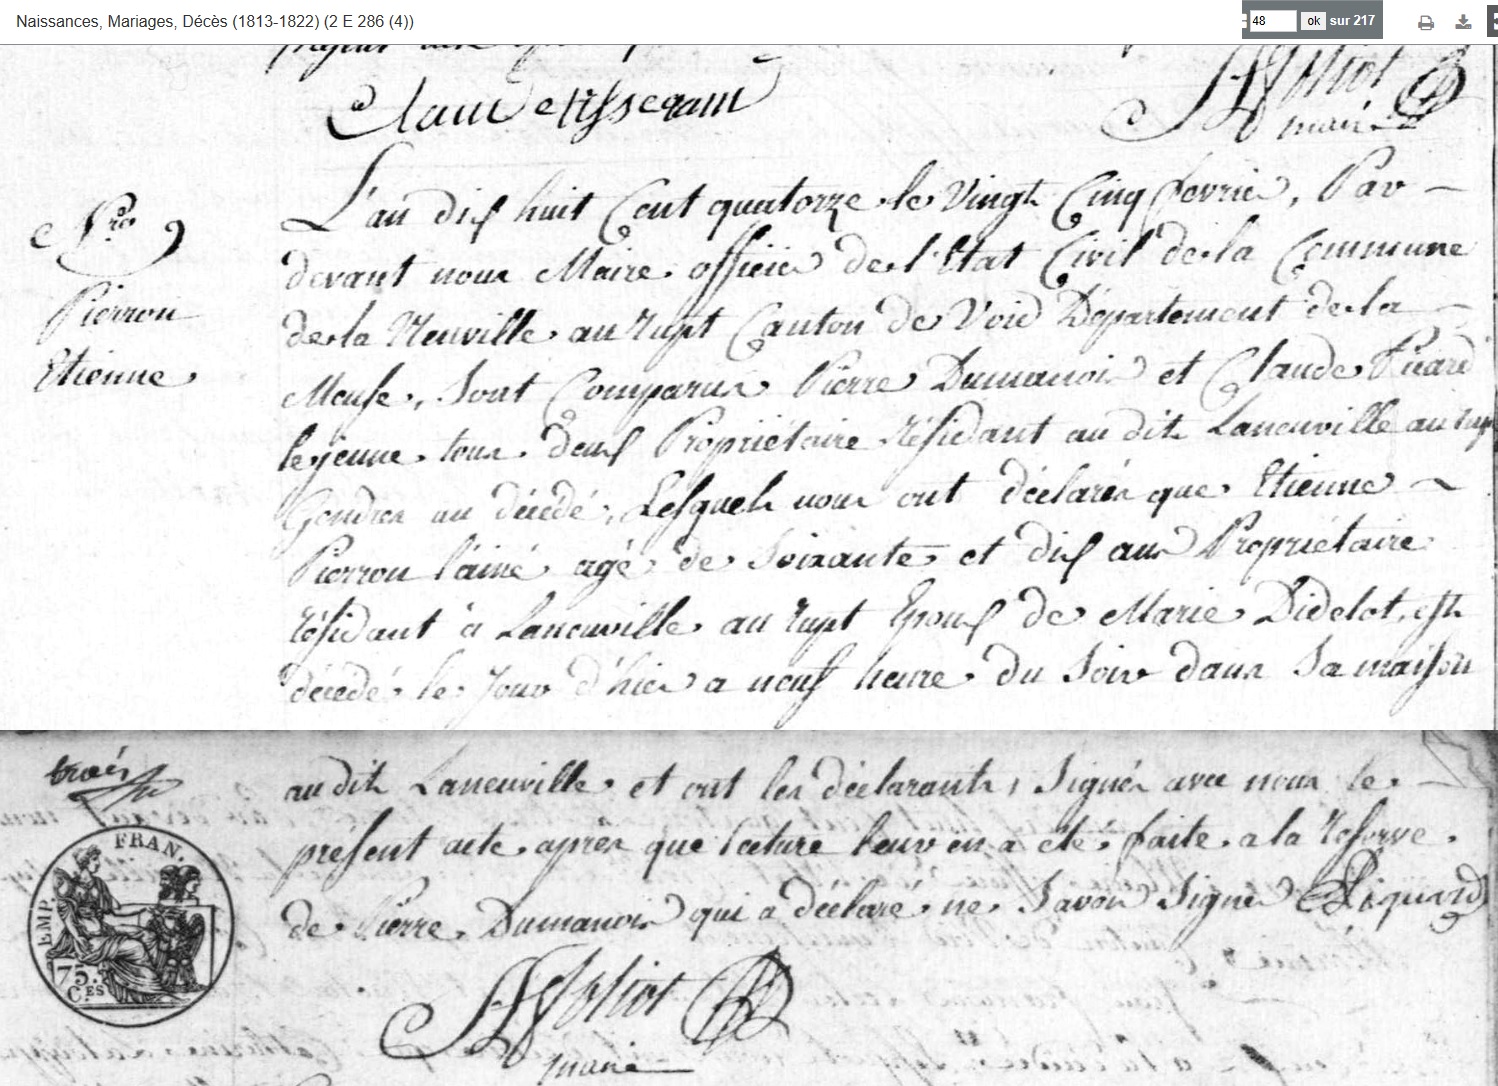 Naissances, Mariages, Décès (1813-1822) (2 E 286 (4))
48 ok sur 217
Claude tisserant
maire
L'an dix huit Cent quatorze le Vingt Cinq fevrier, Par
devant nous Maire officier de l'Etat Civil de la Commune
de la Neuville au rupt Canton de Void Département de la
Meuse, Sont Comparus Pierre Dumanois et Claude Picard
le jeune tous deux Propriétaire résidant au dit Laneuville au rupt
Gendres au décedé, Lesquels nous ont déclarés que Etienne
Pierron l'ainé agé de Soixante et dix ans Propriétaire
résidant à Laneuville au rupt Epoux de Marie Didelot, est
décedé le Jour d'hier a neuf heure du Soir dans Sa maison
Nro 9
Pierron
Etienne
au dit Laneuville et ont les déclarants Signés avec nous le
présent acte apres que lecture leur en a été faite a la reserve
de Pierre Dumanois qui a déclaré ne Savoir Signer Piquard
maire
EMP. FRAN.
75.
C.ES